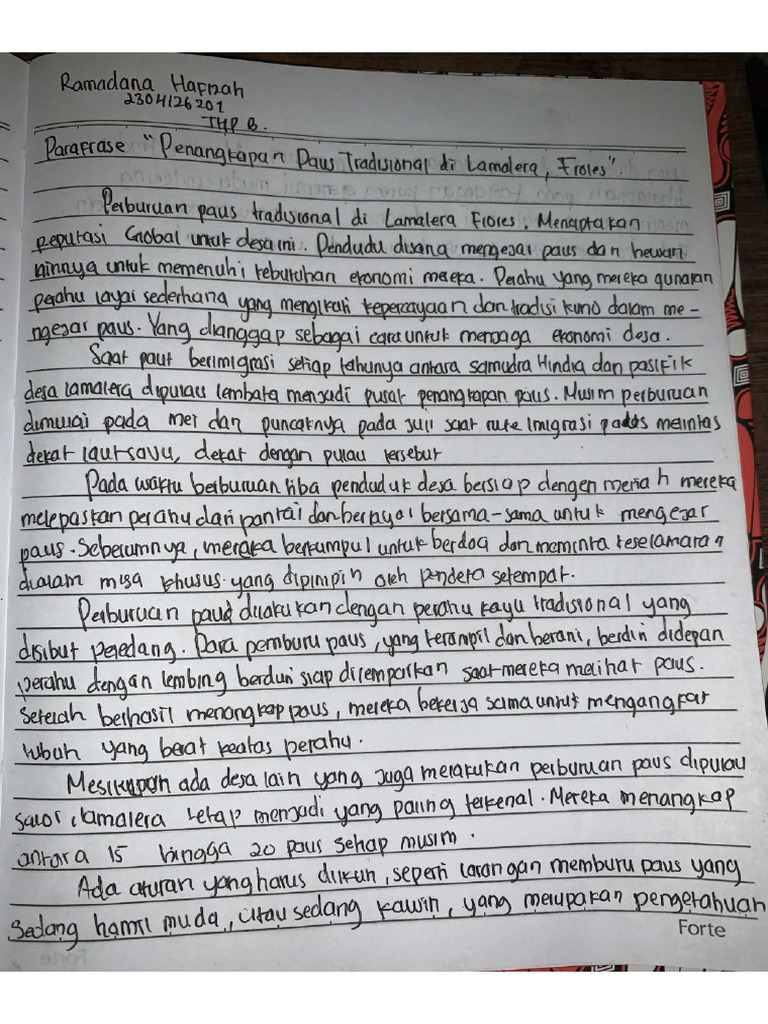 Ramadana Hafizah
2304126201
THP B.
Parafrase "Penangkapan Paus Tradisional di Lamalera, Froles".
Perburuan paus tradisional di Lamalera Flores. Menciptakan
reputasi Global untuk desa ini. Pendudu disana mengejar paus dan hewan
lainnya untuk memenuhi kebutuhan ekonomi mereka. Perahu yang mereka gunakan
perahu layar sederhana yang mengikuti kepercayaan dan tradisi kuno dalam me-
ngejar paus. Yang dianggap sebagai cara untuk menjaga ekonomi desa.
Saat paut berimigrasi setiap tahunya antara samudra Hindia dan pasifik
desa lamalera dipulau lembata menjadi pusat penangkapan paus. Musim perburuan
dimulai pada mei dan puncaknya pada Juli saat rute imigrasi melintas
dekat laut savu, dekat dengan pulau tersebut
Pada waktu berburuan tiba penduduk desa bersiap dengen meriah mereka
melepaskan perahu dari pantai dan berlayar bersama-sama untuk mengejar
paus. Sebelumnya, mereka berkumpul untuk berdoa dan meminta keselamatan
dialam misa khusus yang dipimpin oleh pendeta setempat.
Perburuan paus dilakukan dengan perahu kayu tradisional yang
disibut peledang. Para pemburu paus, yang terampil dan berani, berdiri didepan
perahu dengan lembing berduri siap dilemparkan saat mereka melihat paus.
Setelah berhasil menangkap paus, mereka bekerja sama untuk mengangkat
tubuh yang berat keatas perahu.
Meskipun ada desa lain yang juga melakukan perburuan paus dipulau
solor, lamalera tetap menjadi yang paling terkenal. Mereka menangkap
antara 15 hingga 20 paus setiap musim.
Ada aturan yang harus diikuti, seperti larangan memburu paus yang
sedang hamil muda, atau sedang kawin, yang merupakan pengetahuan
Forte